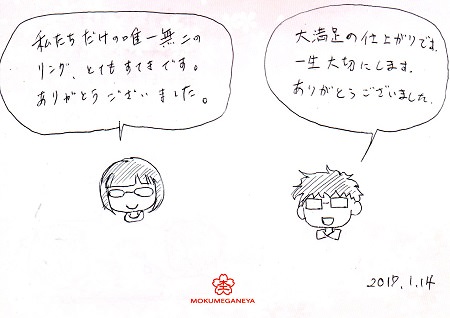 私たちだけの唯一無二の
リング、とてもすてきです。
ありがとうございました。
大満足の仕上がりです。
一生大切にします。
ありがとうございました。
MOKUMEGANEYA
2017.1.14